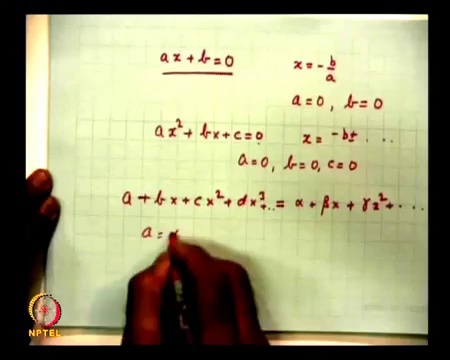 ax + b = 0 x = -b/a
a = 0, b = 0
ax² + bx + c = 0 x = -b± ...
a = 0, b = 0, c = 0
a + bx + cx² + dx³ + .. = α + βx + γx² + ....
a = α
NPTEL